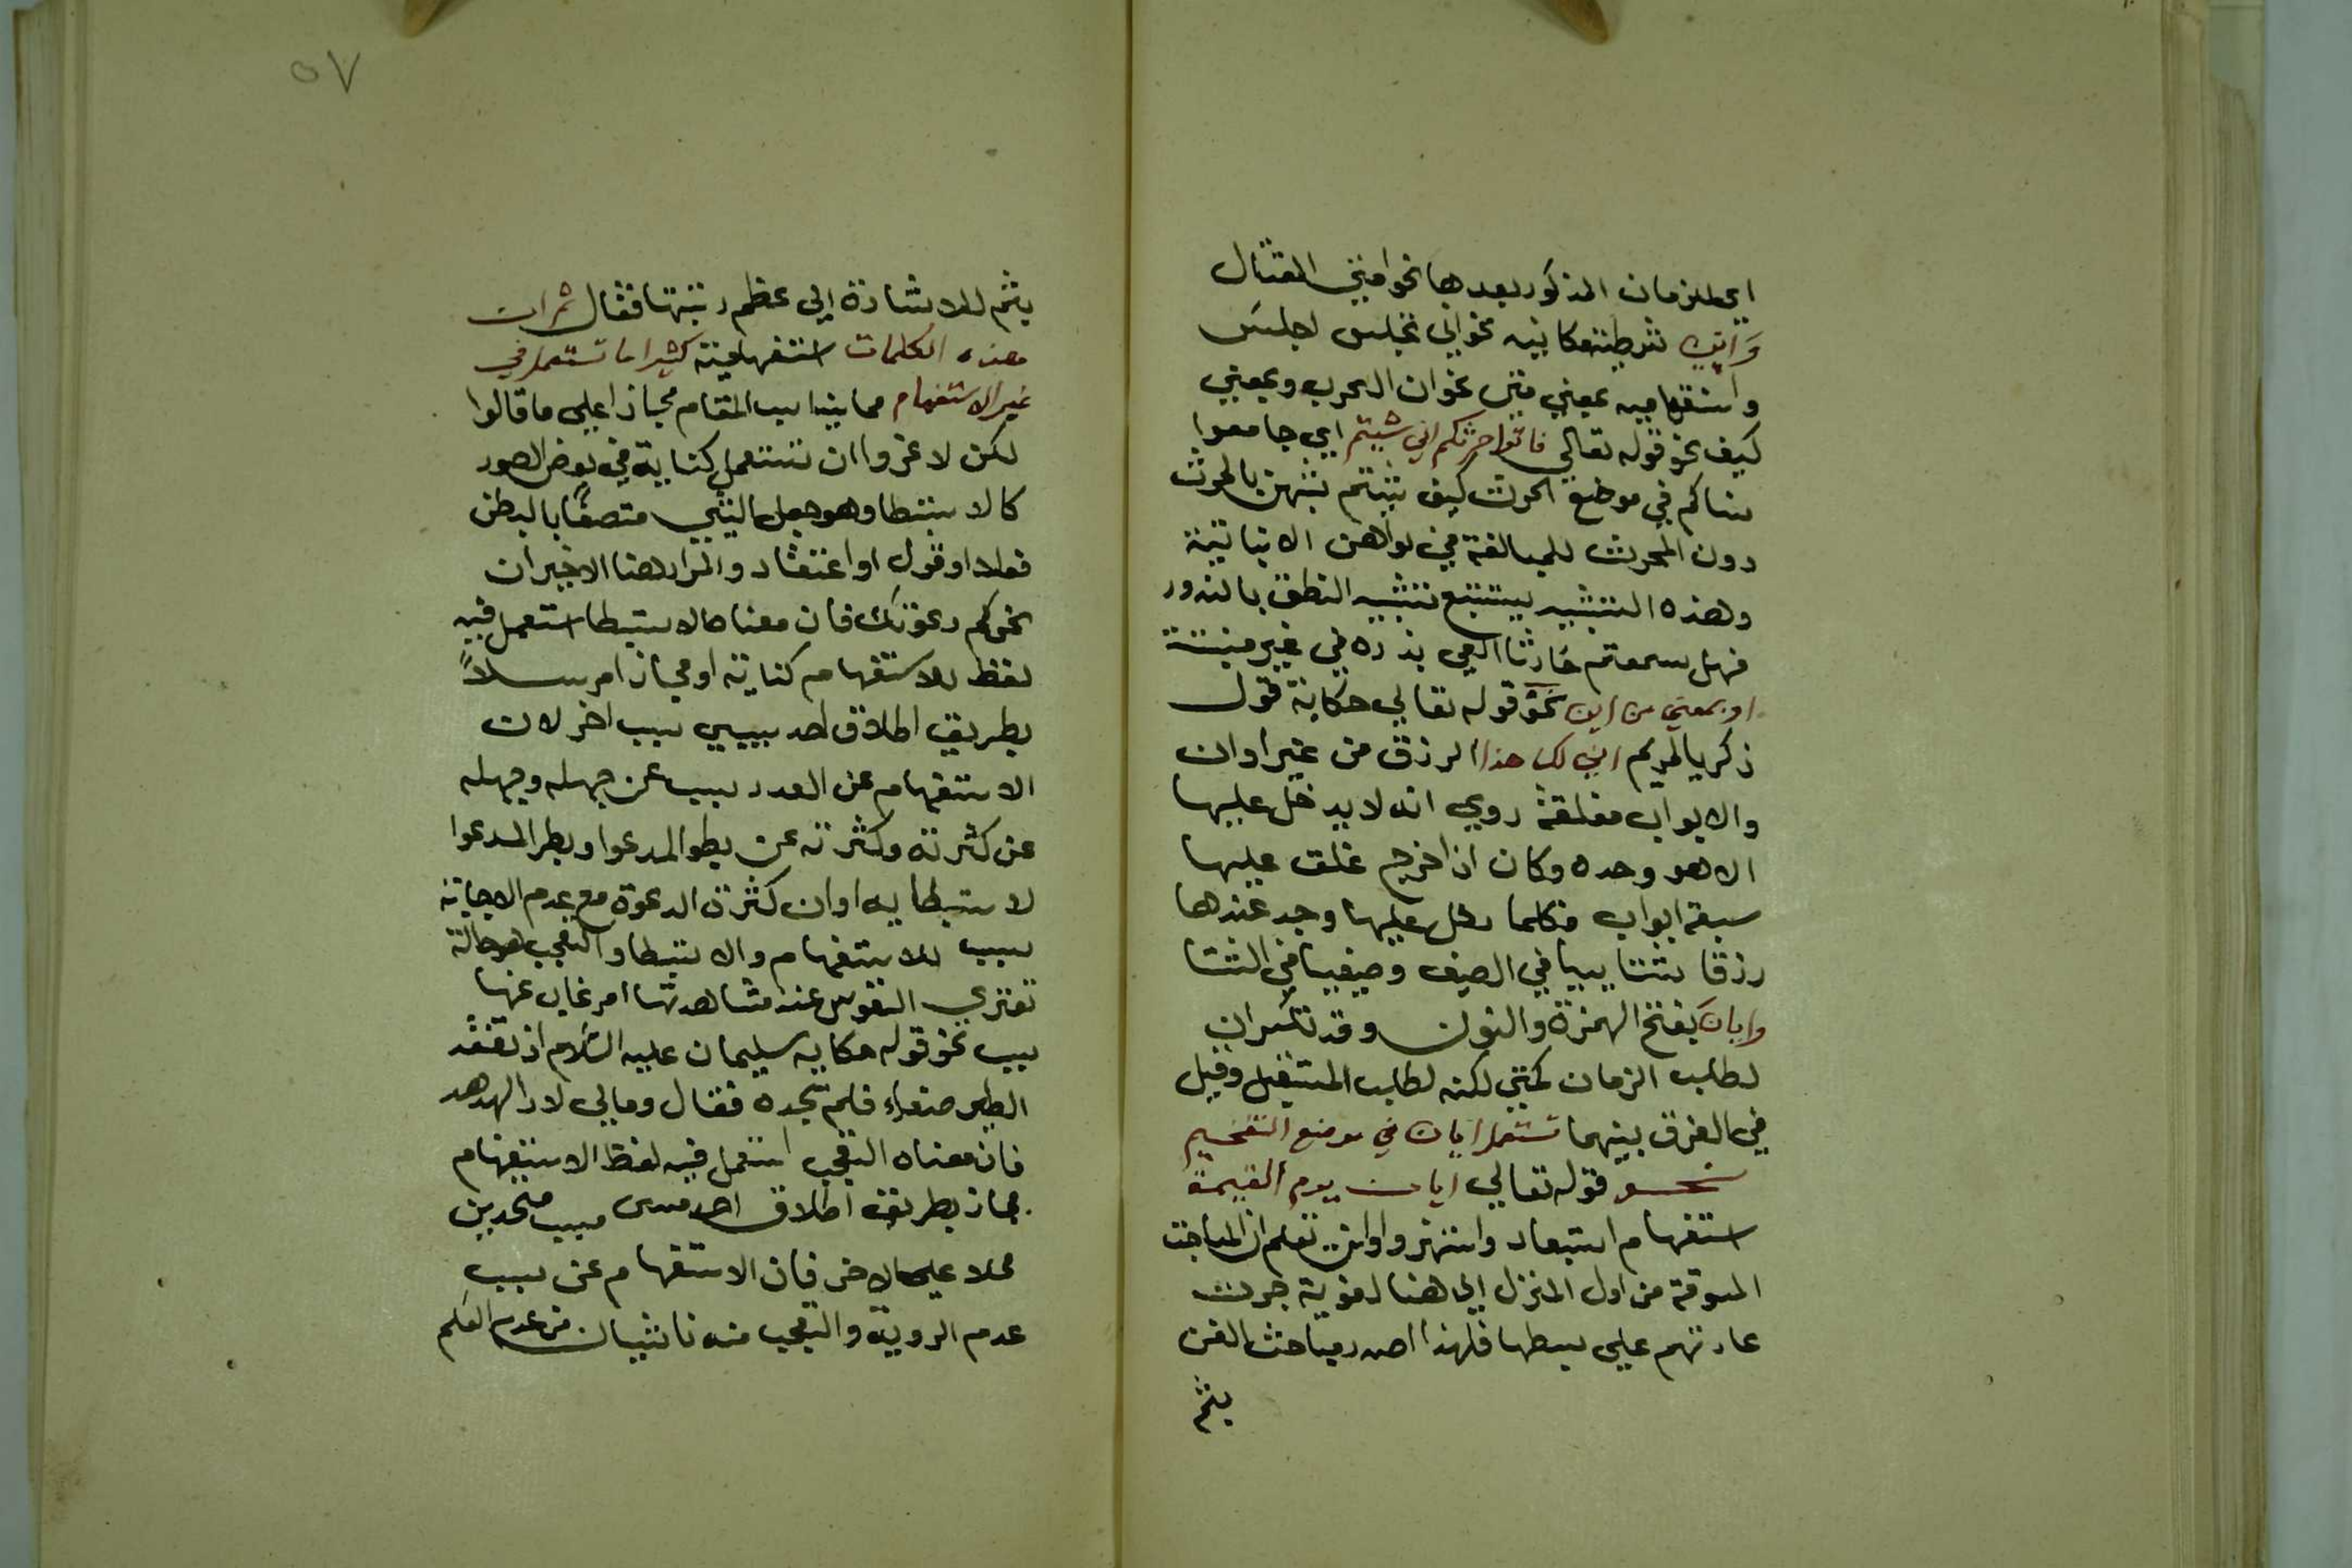 اي للزمان المذكور بعدها نحو امتي القتال
وَاني شرطية مكانيه نحو اني تجلس اجلس
واستفهاميه بمعني متي نحو ان الحرب وبمعني
كيف نحو قوله تعالي فاتوا حرثكم اني شيتم اي جامعوا
نساكم في موضع الحرث كيف شيتم شبهن بالحرث
دون المحرث للمبالغة في
وهذه التشبيه يستتبع تشبيه النطق بالبذور
فهل سمعتم حارثا القي بذره في غير منبته
او بمعني من اين نحو قوله تعالي حكاية قول
زكريا لمريم اني لك هذا الرزق من غير اوان
والابواب مغلقة روي انه لا يدخل عليها
الا هو وحده وكان اذا خرج غلق عليها
سبعة ابواب فكلما دخل عليها وجد عندها
رزقا شتاييا في الصيف وصيفيا في الشتا
وايان بفتح الهمزة والنون وقد تكسران
لطلب الزمان كمتي لكنه لطلب المستقبل وقيل
في الفرق بينهما تستعمل ايان في موضع التفخيم
نحو قوله تعالي ايان يوم القيمة
استفهام استبعاد واستهزوا تعلم ان المباحث
المسوقة من اول المنزل الي هنا لغوية جرت
عادتهم علي بسطها فلهذا اصدر مباحث الفن
بثم
٥٧
بثم للاشارة الي عظم رتبتها فقال ثم ان
هذه الكلمات استفهامية كثيرا ما تستعمل في
غير الاستفهام مما يناسب المقام مجازا علي ما قالوا
لكن لا غروا ان تستعمل كناية في بعض الصور
كالاستبطا وهو جعل الشي متصفا بالبطئ
فعلا او قول او اعتقاد والمراد هنا الاخيران
نحو كم دعوتك فان معناه الاستبطا استعمل فيه
لفظ الاستفهام كناية او مجازا مرسلاً
بطريق اطلاق احد سببي سبب اخر لان
الاستفهام عن العدد سبب عن جهله وجهله
عن كثرته وكثرته عن بطو المدعوا وبطو المدعوا
لاستبطايه او ان كثرة الدعوة مع عدم الاجابة
سبب للاستفهام والاستبطا والتعجب هو حالة
تعتري النفوس عند مشاهدتها امر غاب عنها
سبب نحو قوله حكاية سليمان عليه السلام اذ تفقد
الطير صنعاء فلم يجده فقال ومالي لا ارا الهدهد
فان معناه التعجب استعمل فيه لفظ الاستفهام
مجاز بطريق اطلاق احد سببي متحدين
محلا علي الاخر فان الاستفهام عن سبب
عدم الروية والتعجب منه ناشيان من عدم العلم